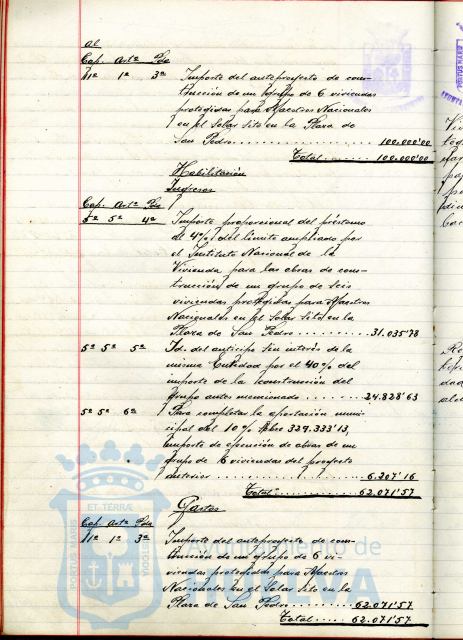 al
Cap. Artº Pda
11º 1º 3º Importe del anteproyecto de cons-
trucción de un grupo de 6 viviendas
protegidas para Maestros Nacionales
en el Solar sito en la Plaza de
San Pedro 100.000'00
Total 100.000'00
Habilitación
Ingresos
Cap. Artº Pda
5º 5º 4º Importe proporcional del préstamo
al 4% del límite ampliado por
el Instituto Nacional de la
Vivienda para las obras de cons-
trucción de un grupo de seis
viviendas protegidas para Maestros
Nacionales en el Solar sito en la
Plaza de San Pedro 31.035'78
5º 5º 5º Id. del anticipo sin interés de la
misma Entidad por el 40% del
importe de la construcción del
grupo antes mencionado 24.828'63
5º 5º 6º Para completar la aportación muni-
cipal del 10% sobre 329.333'13,
importe de ejecución de obras de un
grupo de 6 viviendas del proyecto
anterior 6.207'16
Total 62.071'57
Gastos
Cap. Artº Pda
11º 1º 3º Importe del anteproyecto de cons-
trucción de un grupo de 6 vi-
viendas protegidas para Maestros
Nacionales en el Solar sito en la
Plaza de San Pedro 62.071'57
Total 62.071'57